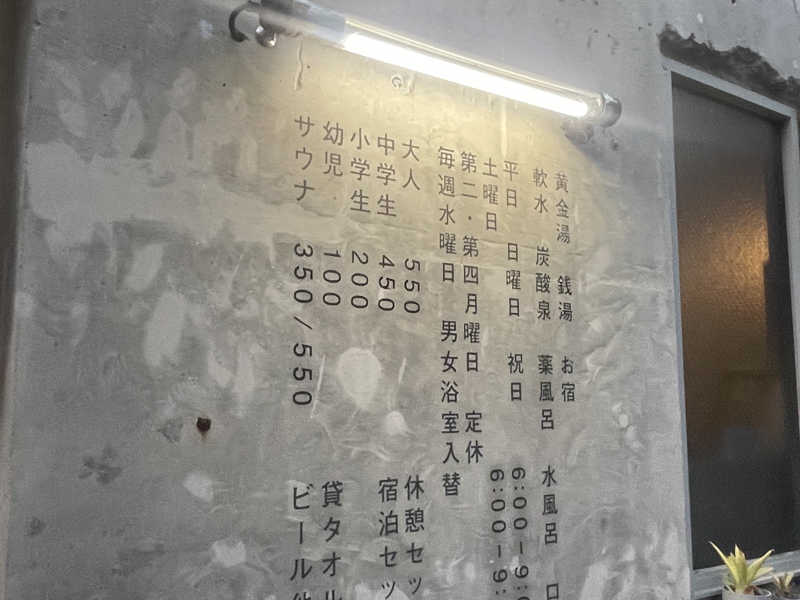 黄金湯 銭湯 お宿
軟水 炭酸泉 薬風呂 水風呂 ロ
平日 日曜日 祝日 6:00-9:
土曜日 6:00-9:
第二・第四月曜日 定休
毎週水曜日 男女浴室入替
大人 550 休憩セッ
中学生 450 宿泊セッ
小学生 200
幼児 100 貸タオル
サウナ 350/550 ビール